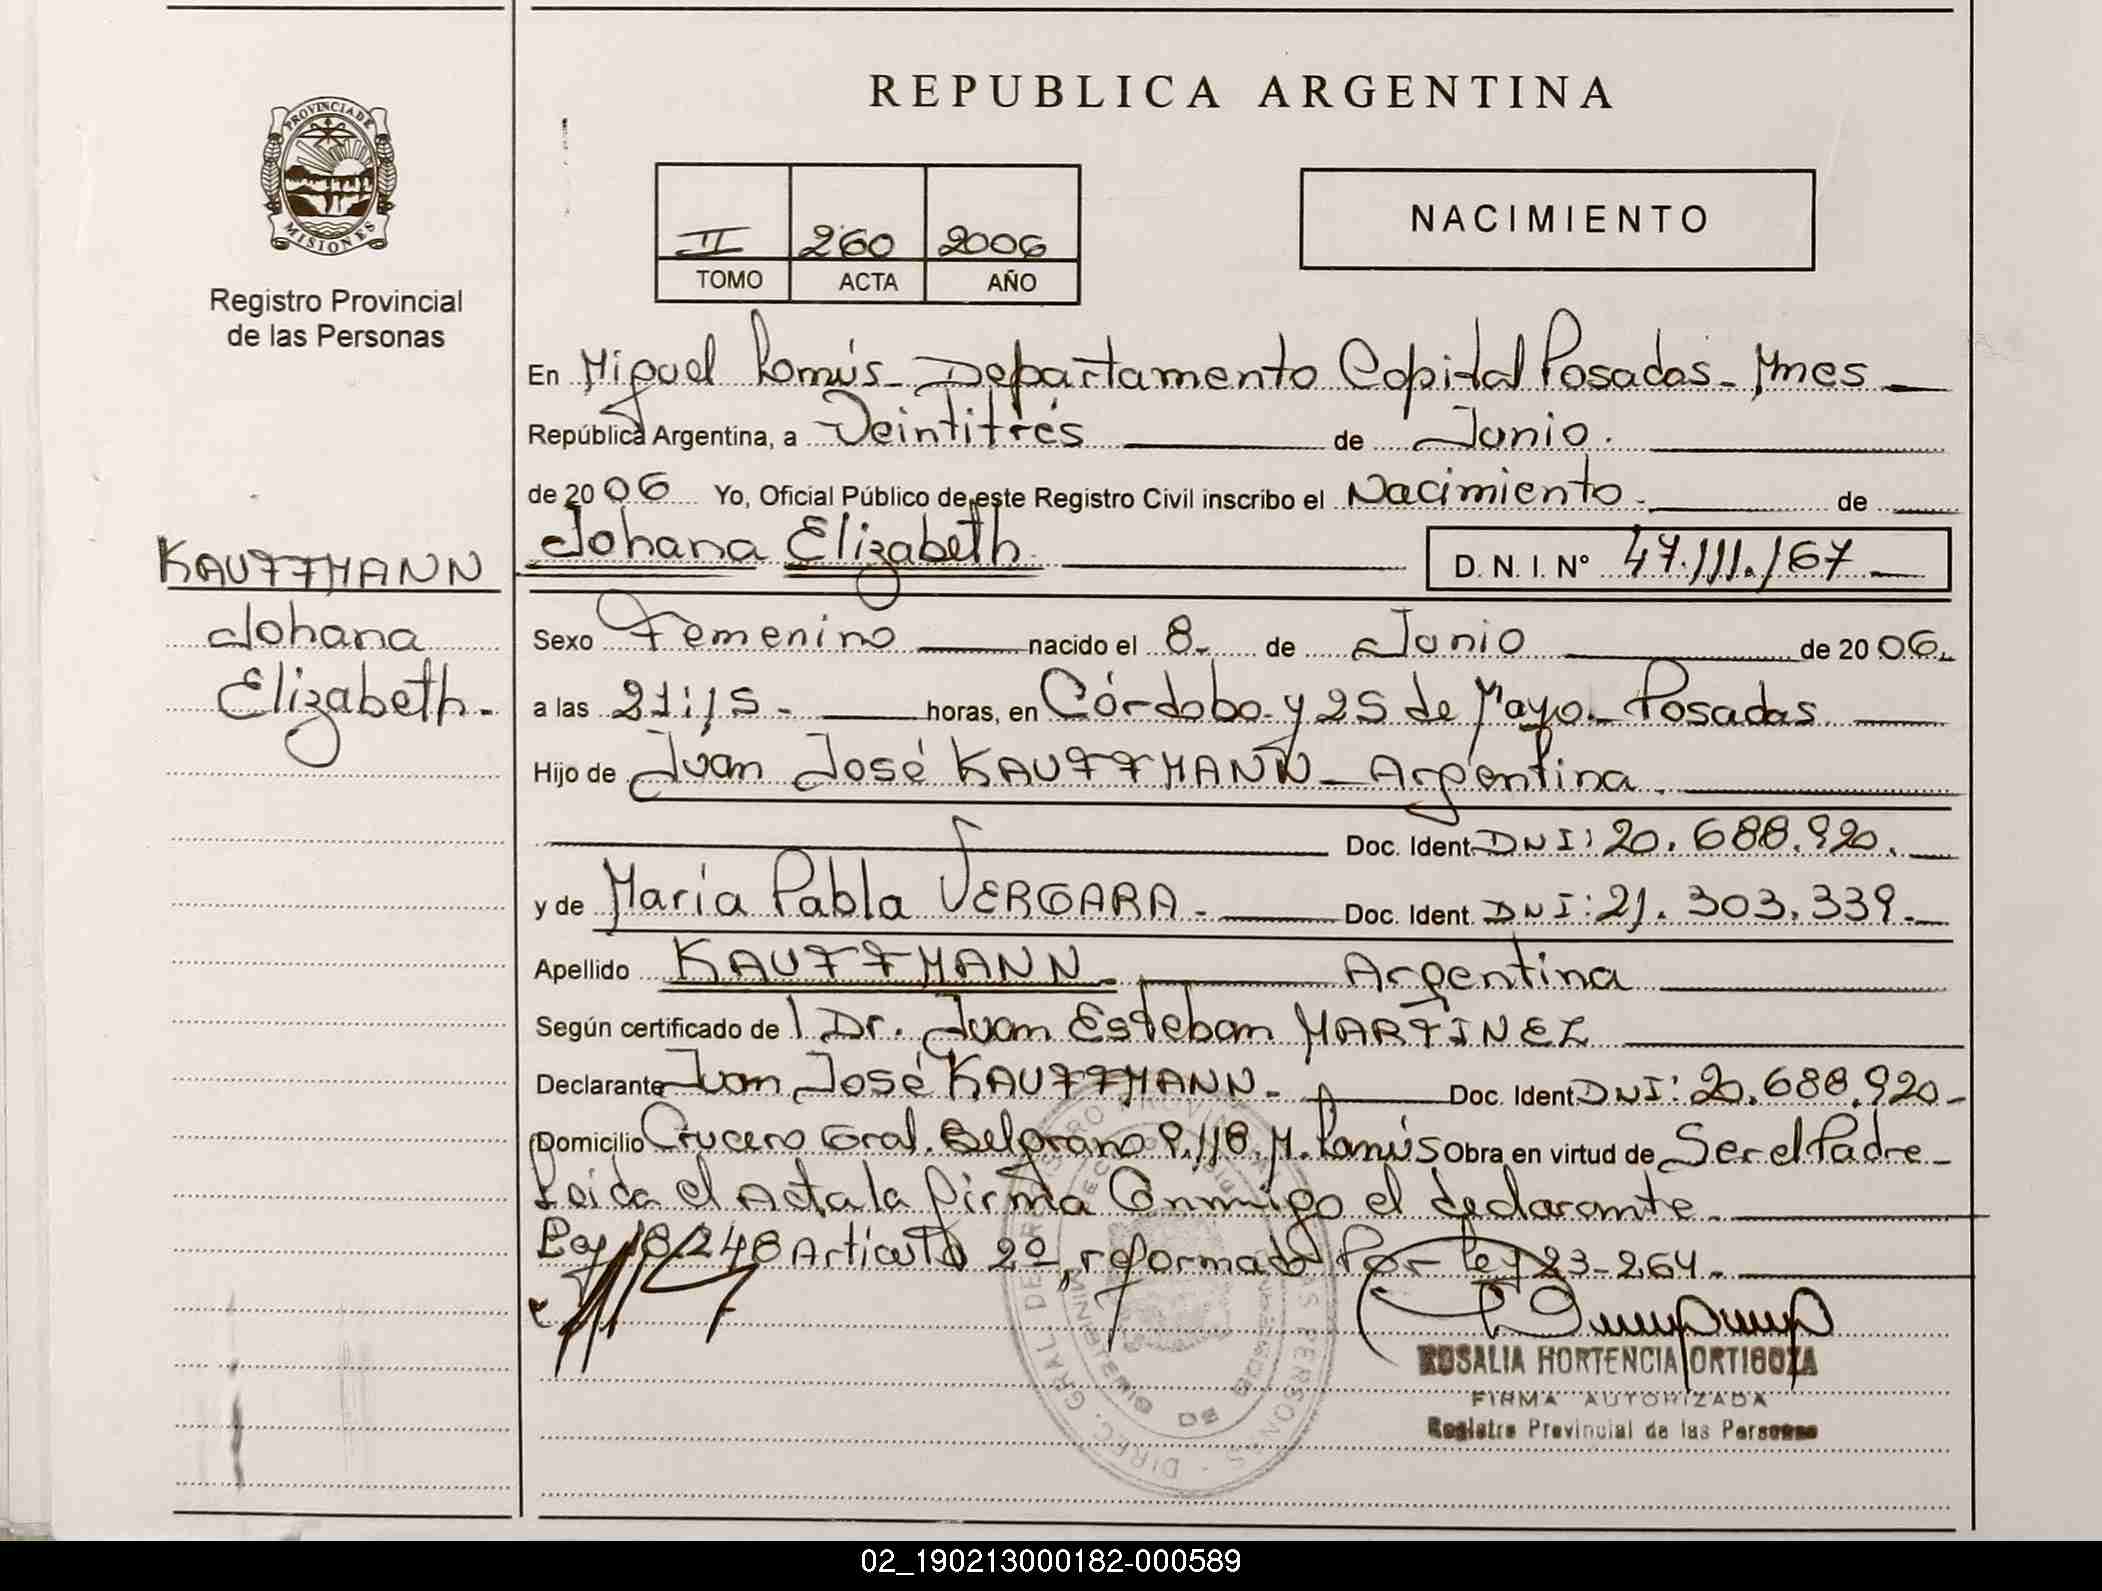 REPUBLICA ARGENTINA
PROVINCIA DE
MISIONES
Registro Provincial
de las Personas
II 260 2006
TOMO ACTA AÑO
NACIMIENTO
En Miguel Lanús - Departamento Capital Posadas - Mnes
República Argentina, a Veintitrés de Junio.
de 2006 Yo, Oficial Público de este Registro Civil inscribo el Nacimiento. de
Johana Elizabeth. D. N. I. Nº 47.111.167
KAUFFMANN
Johana
Elizabeth.
Sexo Femenino nacido el 8 de Junio de 2006.
a las 21:15 - horas, en Córdoba y 25 de Mayo - Posadas
Hijo de Juan José KAUFFMANN - Argentina
Doc. Ident. DNI: 20.688.920.
y de María Pabla VERGARA - Doc. Ident. DNI: 21.303.339.
Apellido KAUFFMANN - Argentina
Según certificado de Dr. Juan Esteban MARTINEZ
Declarante Juan José KAUFFMANN - Doc. Ident. DNI: 20.688.920 -
Domicilio Crucero Gral. Belgrano 9.118. M. Lanús Obra en virtud de Ser el Padre -
Leida el Acta la firma Conmigo el declarante
Ley 18.248 Articulo 2º, reformado Por ley 23-264.
ROSALIA HORTENCIA ORTIGOZA
FIRMA AUTORIZADA
Registro Provincial de las Personas
02_190213000182-000589